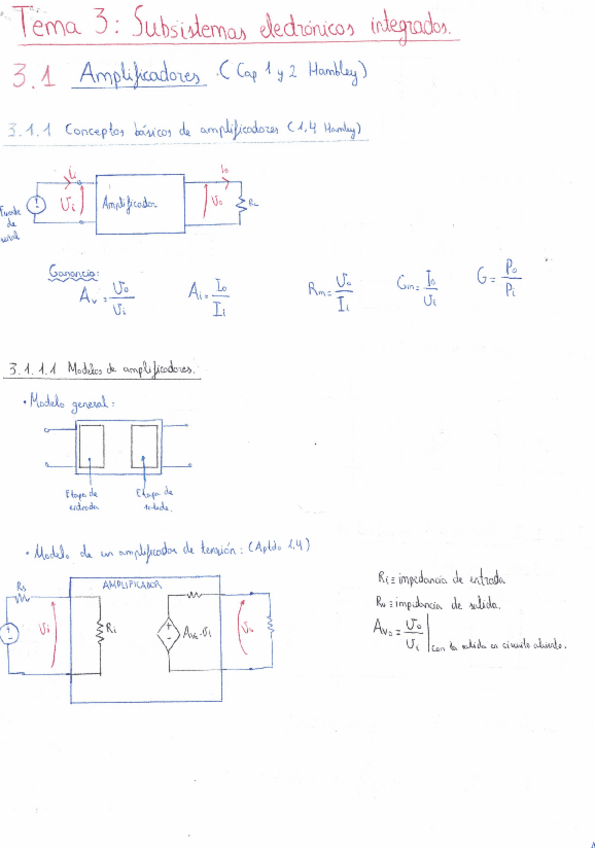 Tema 3: Subsistemas electrónicos integrados.
3.1 Amplificadores. (Cap 1 y 2 Hambley)
3.1.1 Conceptos básicos de amplificadores (1,4 Hamley)
ii
Io
Fuente de señal
Vi
Amplificador
Vo
RL
Ganancia:
Av = Vo/Vi
Ai = Io/Ii
Rm = Vo/Ii
Gm = Io/Vi
G = Po/Pi
3.1.1.1 Modelos de amplificadores.
• Modelo general:
Etapa de entrada
Etapa de salida.
• Modelo de un amplificador de tensión: (Aptdo 1,4)
Rs
AMPLIFICADOR
Vi
Ri
Avo·Vi
Vo
Ri ≡ impedancia de entrada
Ro ≡ impedancia de salida.
Avo = Vo/Vi | con la salida en circuito abierto.